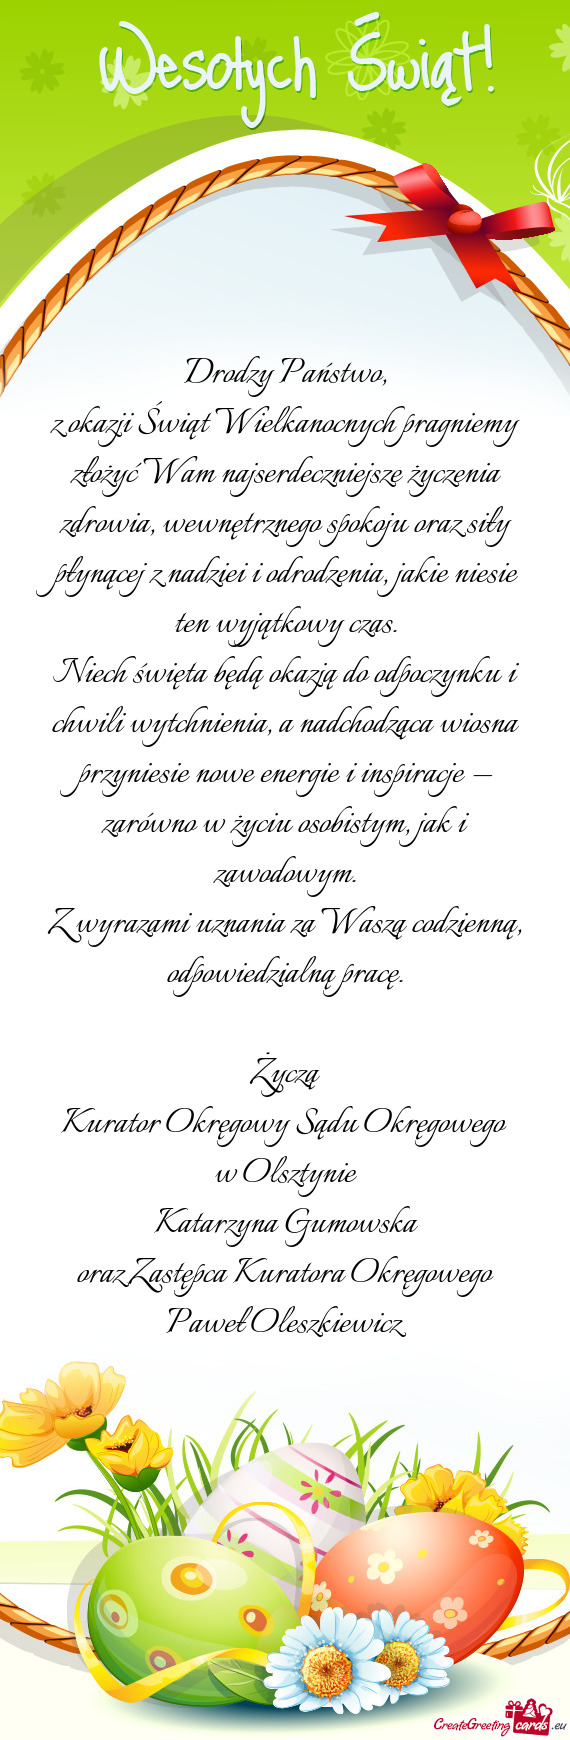 Wesołych Świąt!
Drodzy Państwo,
z okazji Świąt Wielkanocnych pragniemy
złożyć Wam najserdeczniejsze życzenia
zdrowia, wewnętrznego spokoju oraz siły
płynącej z nadziei i odrodzenia, jakie niesie
ten wyjątkowy czas.
Niech święta będą okazją do odpoczynku i
chwili wytchnienia, a nadchodząca wiosna
przyniesie nowe energie i inspiracje –
zarówno w życiu osobistym, jak i
zawodowym.
Z wyrazami uznania za Waszą codzienną,
odpowiedzialną pracę.
Życzą
Kurator Okręgowy Sądu Okręgowego
w Olsztynie
Katarzyna Gumowska
oraz Zastępca Kuratora Okręgowego
Paweł Oleszkiewicz
CreateGreetingcards.eu